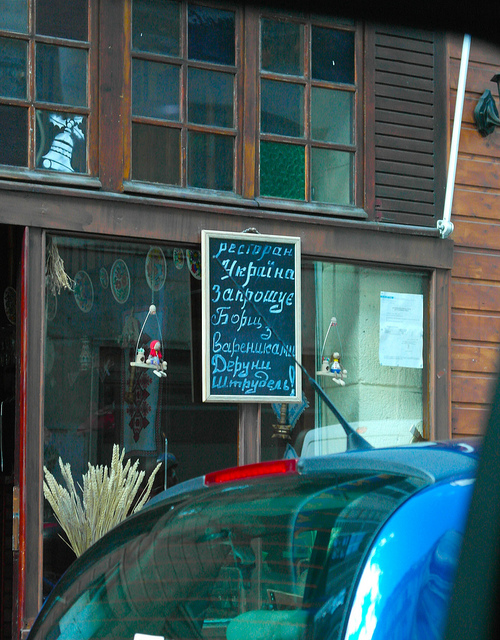 ресторан
Україна
Запрошує
Борщ з
варениками
Деруни
Штрудель!